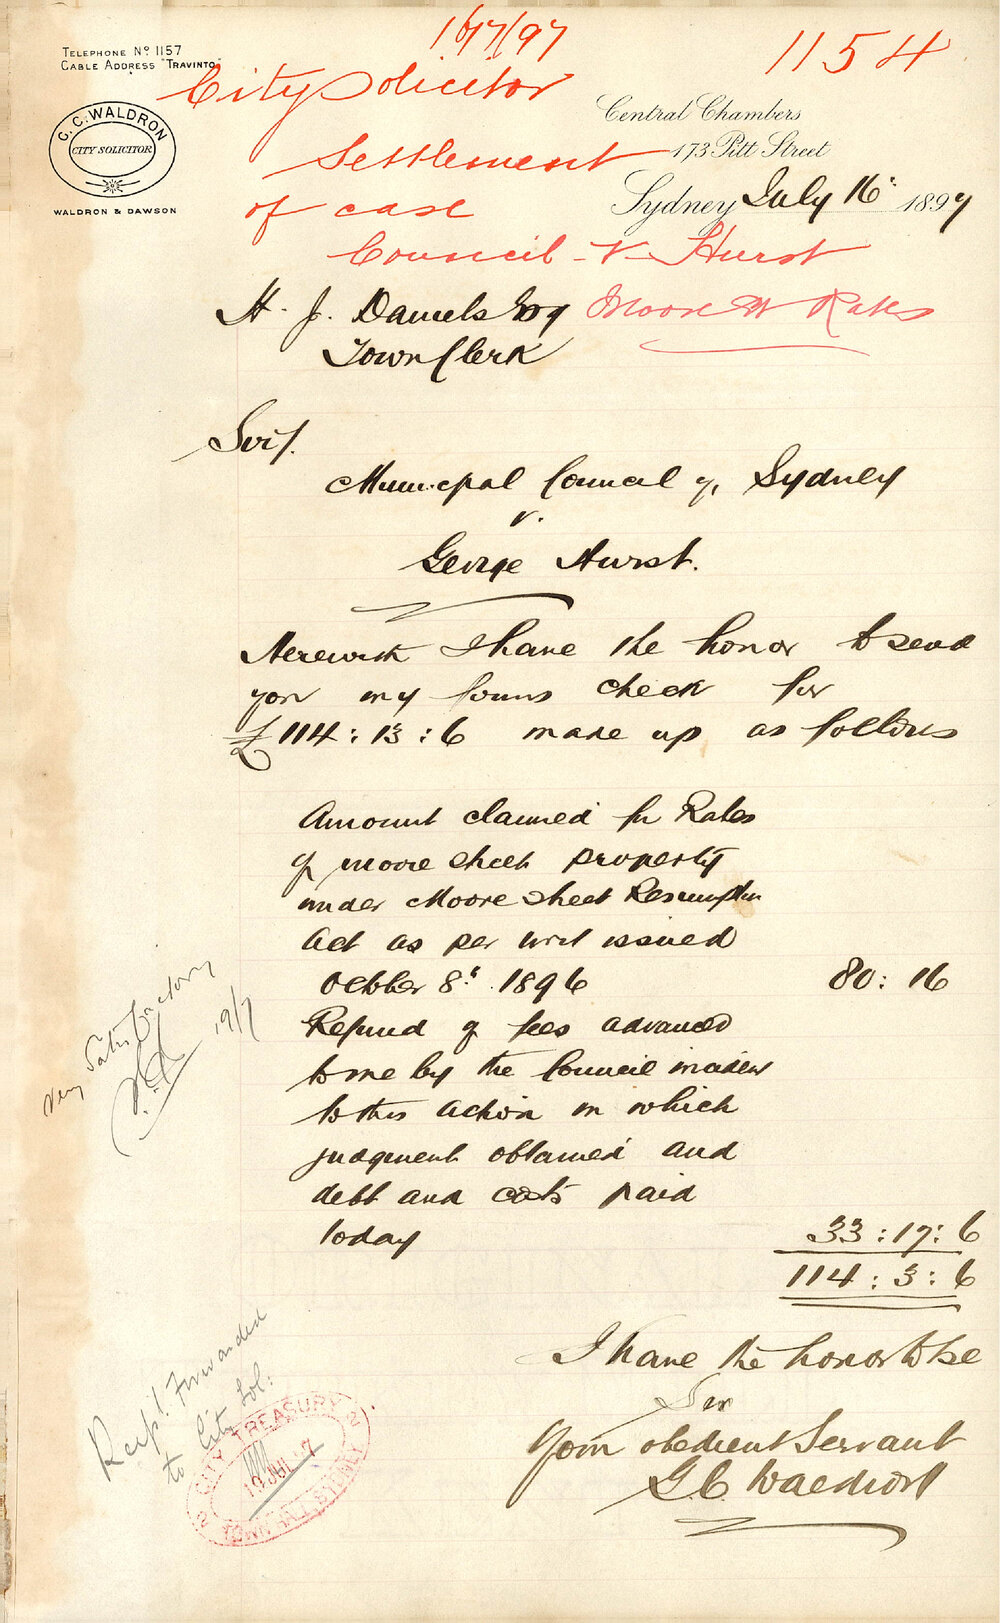 16/7/97
1154
TELEPHONE No 1157
CABLE ADDRESS "TRAVINTO"
G. C. WALDRON
CITY SOLICITOR
WALDRON & DAWSON
City Solicitor
Settlement
of case
Council v Hurst
Moore St Rates
Central Chambers
173 Pitt Street
Sydney July 16: 1897
H. J. Daniels Esq
Town Clerk
Sir/.
Municipal Council of Sydney
v.
George Hurst.
Herewith I have the honor to send
you my firms check for
£114 : 13 : 6 made up as follows
Amount claimed for Rates
of Moore Street property
under Moore Street Resumption
Act as per writ issued
October 8th. 1896 80 : 16
Refund of fees advanced
to me by the Council incident
to this action in which
judgment obtained and
debt and costs paid
today 33 : 17 : 6
114 : 3 : 6
I have the honor to be
Sir
Your obedient Servant
G. C. Waldron
Very Satisfactory
19/7
Recpt. Forwarded
to City Sol:
CITY TREASURY
19 JUL 97
TOWN HALL SYDNEY